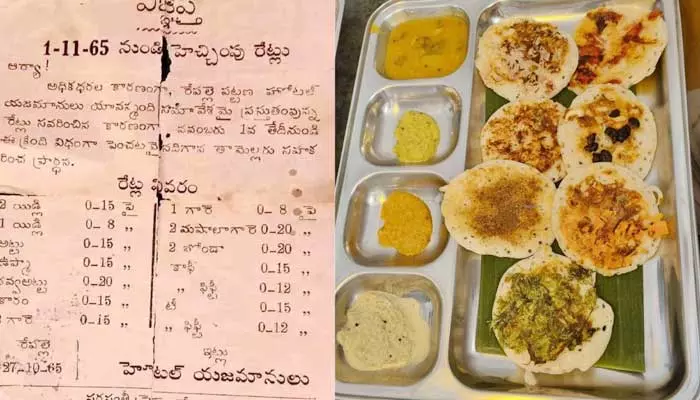 విజ్ఞప్తి
1-11-65 నుండి హెచ్చింపు రేట్లు
ఆర్యా!
అధికధరల కారణంగా, రేపల్లె పట్టణ హోటల్
యజమానులు యావన్మంది సమావేశమై ప్రస్తుతంవున్న
రేట్లు సవరించిన కారణంగా నవంబరు 1వ తేదీనుండి
ఈ క్రింది విధంగా పెంచటమైనదిగాన తామెల్లరు సహక
రించ ప్రార్థన.
రేట్ల వివరం
2 యిడ్లి 0-15 పై
1 యిడ్లి 0-8 ,,
అట్టు 0-15 ,,
ఉప్మా 0-15 ,,
రవ్వఅట్టు 0-20 ,,
కారం 0-15 ,,
2 గారె 0-15 ,,
1 గారె 0-8 పై
2 మసాలాగారె 0-20 ,,
2 బోండా 0-20 ,,
కాఫీ 0-15 ,,
,, 0-12 ,,
టీ 0-15 ,,
,, 0-12 ,,
రేపల్లె
27-10-65
ఇట్లు
హోటల్ యజమానులు